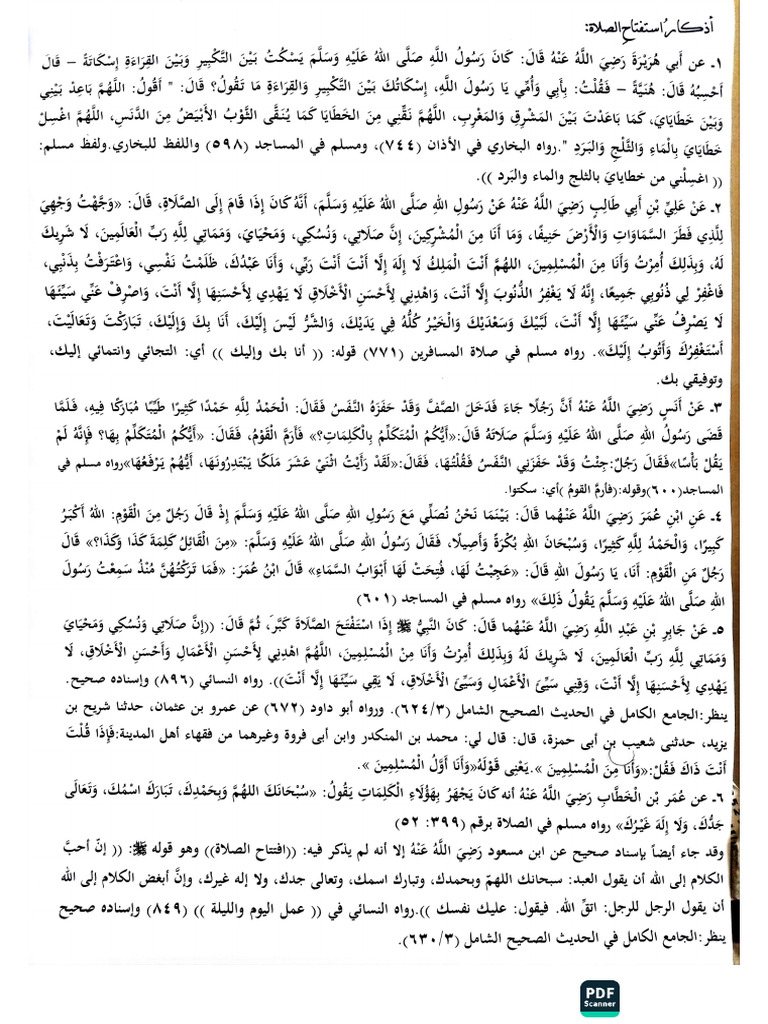 أذكار استفتاح الصلاة:
١ـ عن أبي هُرَيْرةَ رَضِيَ اللَّهُ عَنْهُ قَالَ: كَانَ رَسُولُ اللهِ صَلَّى اللهُ عَلَيْهِ وَسَلَّمَ يَسْكُتُ بَيْنَ التَّكْبِيرِ وَبَيْنَ القِرَاءَةِ إِسْكَاتَةً – قَالَ
أَحْسِبُهُ قَالَ: هُنَيَّةً – فَقُلْتُ: بِأَبِي وَأُمِّي يَا رَسُولَ اللهِ، إِسْكَاتُكَ بَيْنَ التَّكْبِيرِ وَالقِرَاءَةِ مَا تَقُولُ؟ قَالَ: " أَقُولُ: اللَّهُمَّ بَاعِدْ بَيْنِي
وَبَيْنَ خَطَايَايَ، كَمَا بَاعَدْتَ بَيْنَ المَشْرِقِ وَالمَغْرِبِ، اللَّهُمَّ نَقِّنِي مِنَ الخَطَايَا كَمَا يُنَقَّى الثَّوْبُ الأَبْيَضُ مِنَ الدَّنَسِ، اللَّهُمَّ اغْسِلْ
خَطَايَايَ بِالْمَاءِ وَالثَّلْجِ وَالبَرَدِ ".رواه البخاري في الأذان (٧٤٤)، ومسلم في المساجد (٥٩٨) واللفظ للبخاري.ولفظ مسلم:
(( اغسِلْني من خطايايَ بالثلج والماء والبَرد )).
٢ـ عَنْ عَلِيِّ بْنِ أَبِي طَالِبٍ رَضِيَ اللَّهُ عَنْهُ عَنْ رَسُولِ اللهِ صَلَّى اللهُ عَلَيْهِ وَسَلَّمَ، أَنَّهُ كَانَ إِذَا قَامَ إِلَى الصَّلَاةِ، قَالَ: «وَجَّهْتُ وَجْهِيَ
لِلَّذِي فَطَرَ السَّمَاوَاتِ وَالْأَرْضَ حَنِيفًا، وَمَا أَنَا مِنَ الْمُشْرِكِينَ، إِنَّ صَلَاتِي، وَنُسُكِي، وَمَحْيَايَ، وَمَمَاتِي لِلَّهِ رَبِّ الْعَالَمِينَ، لَا شَرِيكَ
لَهُ، وَبِذَلِكَ أُمِرْتُ وَأَنَا مِنَ الْمُسْلِمِينَ، اللهُمَّ أَنْتَ الْمَلِكُ لَا إِلَهَ إِلَّا أَنْتَ أَنْتَ رَبِّي، وَأَنَا عَبْدُكَ، ظَلَمْتُ نَفْسِي، وَاعْتَرَفْتُ بِذَنْبِي،
فَاغْفِرْ لِي ذُنُوبِي جَمِيعًا، إِنَّهُ لَا يَغْفِرُ الذُّنُوبَ إِلَّا أَنْتَ، وَاهْدِنِي لِأَحْسَنِ الْأَخْلَاقِ لَا يَهْدِي لِأَحْسَنِهَا إِلَّا أَنْتَ، وَاصْرِفْ عَنِّي سَيِّئَهَا
لَا يَصْرِفُ عَنِّي سَيِّئَهَا إِلَّا أَنْتَ، لَبَّيْكَ وَسَعْدَيْكَ وَالْخَيْرُ كُلُّهُ فِي يَدَيْكَ، وَالشَّرُّ لَيْسَ إِلَيْكَ، أَنَا بِكَ وَإِلَيْكَ، تَبَارَكْتَ وَتَعَالَيْتَ،
أَسْتَغْفِرُكَ وَأَتُوبُ إِلَيْكَ». رواه مسلم في صلاة المسافرين (٧٧١) قوله: (( أنا بك وإليك )) أي: التجائي وانتمائي إليك،
وتوفيقي بك.
٣ـ عَنْ أَنَسٍ رَضِيَ اللَّهُ عَنْهُ أَنَّ رَجُلًا جَاءَ فَدَخَلَ الصَّفَّ وَقَدْ حَفَزَهُ النَّفَسُ فَقَالَ: الْحَمْدُ لِلَّهِ حَمْدًا كَثِيرًا طَيِّبًا مُبَارَكًا فِيهِ، فَلَمَّا
قَضَى رَسُولُ اللهِ صَلَّى اللهُ عَلَيْهِ وَسَلَّمَ صَلَاتَهُ قَالَ:«أَيُّكُمُ الْمُتَكَلِّمُ بِالْكَلِمَاتِ؟» فَأَرَمَّ الْقَوْمُ، فَقَالَ: «أَيُّكُمُ الْمُتَكَلِّمُ بِهَا؟ فَإِنَّهُ لَمْ
يَقُلْ بَأْسًا»فَقَالَ رَجُلٌ:جِئْتُ وَقَدْ حَفَزَنِي النَّفَسُ فَقُلْتُهَا، فَقَالَ:«لَقَدْ رَأَيْتُ اثْنَيْ عَشَرَ مَلَكًا يَبْتَدِرُونَهَا، أَيُّهُمْ يَرْفَعُهَا»رواه مسلم في
المساجد(٦٠٠)وقوله:(فأرمَّ القومُ )أي: سكتوا.
٤ـ عَنِ ابْنِ عُمَرَ رَضِيَ اللَّهُ عَنْهُما قَالَ: بَيْنَمَا نَحْنُ نُصَلِّي مَعَ رَسُولِ اللهِ صَلَّى اللهُ عَلَيْهِ وَسَلَّمَ إِذْ قَالَ رَجُلٌ مِنَ الْقَوْمِ: اللهُ أَكْبَرُ
كَبِيرًا، وَالْحَمْدُ لِلَّهِ كَثِيرًا، وَسُبْحَانَ اللهِ بُكْرَةً وَأَصِيلًا، فَقَالَ رَسُولُ اللهِ صَلَّى اللهُ عَلَيْهِ وَسَلَّمَ: «مِنَ الْقَائِلُ كَلِمَةَ كَذَا وَكَذَا؟» قَالَ
رَجُلٌ مَنِ الْقَوْمِ: أَنَا، يَا رَسُولَ اللهِ قَالَ: «عَجِبْتُ لَهَا، فُتِحَتْ لَهَا أَبْوَابُ السَّمَاءِ» قَالَ ابْنُ عُمَرَ: «فَمَا تَرَكْتُهُنَّ مُنْذُ سَمِعْتُ رَسُولَ
اللهِ صَلَّى اللهُ عَلَيْهِ وَسَلَّمَ يَقُولُ ذَلِكَ» رواه مسلم في المساجد (٦٠١)
٥ـ عَنْ جَابِرِ بْنِ عَبْدِ اللَّهِ رَضِيَ اللَّهُ عَنْهُما قَالَ: كَانَ النَّبِيُّ ﷺ إِذَا اسْتَفْتَحَ الصَّلَاةَ كَبَّرَ، ثُمَّ قَالَ: ((إِنَّ صَلَاتِي وَنُسُكِي وَمَحْيَايَ
وَمَمَاتِي لِلَّهِ رَبِّ الْعَالَمِينَ، لَا شَرِيكَ لَهُ وَبِذَلِكَ أُمِرْتُ وَأَنَا مِنْ الْمُسْلِمِينَ، اللَّهُمَّ اهْدِنِي لِأَحْسَنِ الْأَعْمَالِ وَأَحْسَنِ الْأَخْلَاقِ، لَا
يَهْدِي لِأَحْسَنِهَا إِلَّا أَنْتَ، وَقِنِي سَيِّئَ الْأَعْمَالِ وَسَيِّئَ الْأَخْلَاقِ، لَا يَقِي سَيِّئَهَا إِلَّا أَنْتَ)). رواه النسائي (٨٩٦) وإسناده صحيح.
ينظر:الجامع الكامل في الحديث الصحيح الشامل (٦٢٤/٣). ورواه أبو داود (٦٧٢) عن عمرو بن عثمان، حدثنا شريح بن
يزيد، حدثني شعيب بن أبى حمزة، قال: قال لي: محمد بن المنكدر وابن أبى فروة وغيرهما من فقهاء أهل المدينة:فَإِذَا قُلْتَ
أَنْتَ ذَاكَ فَقُلْ:«وَأَنَا مِنَ الْمُسْلِمِينَ ».يَعْنِى قَوْلَهُ«وَأَنَا أَوَّلُ الْمُسْلِمِينَ ».
٦ـ عن عُمَر بْنِ الْخَطَّابِ رَضِيَ اللَّهُ عَنْهُ أنه كَانَ يَجْهَرُ بِهَؤُلَاءِ الْكَلِمَاتِ يَقُولُ: «سُبْحَانَكَ اللهُمَّ وَبِحَمْدِكَ، تَبَارَكَ اسْمُكَ، وَتَعَالَى
جَدُّكَ، وَلَا إِلَهَ غَيْرُكَ» رواه مسلم في الصلاة برقم (٣٩٩: ٥٢
وقد جاء أيضاً بإسناد صحيح عن ابن مسعود رَضِيَ اللَّهُ عَنْهُ إلا أنه لم يذكر فيه: ((افتتاح الصلاة)) وهو قوله ﷺ: (( إنّ أحبَّ
الكلام إلى الله أن يقول العبد: سبحانك اللهمّ وبحمدك، وتبارك اسمك، وتعالى جدك، ولا إله غيرك، وإنَّ أبغض الكلام إلى الله
أن يقول الرجل للرجل: اتقِ الله. فيقول: عليك نفسك )).رواه النسائي في (( عمل اليوم والليلة )) (٨٤٩) وإسناده صحيح
ينظر:الجامع الكامل في الحديث الصحيح الشامل (٦٣٠/٣).
PDF
Scanner